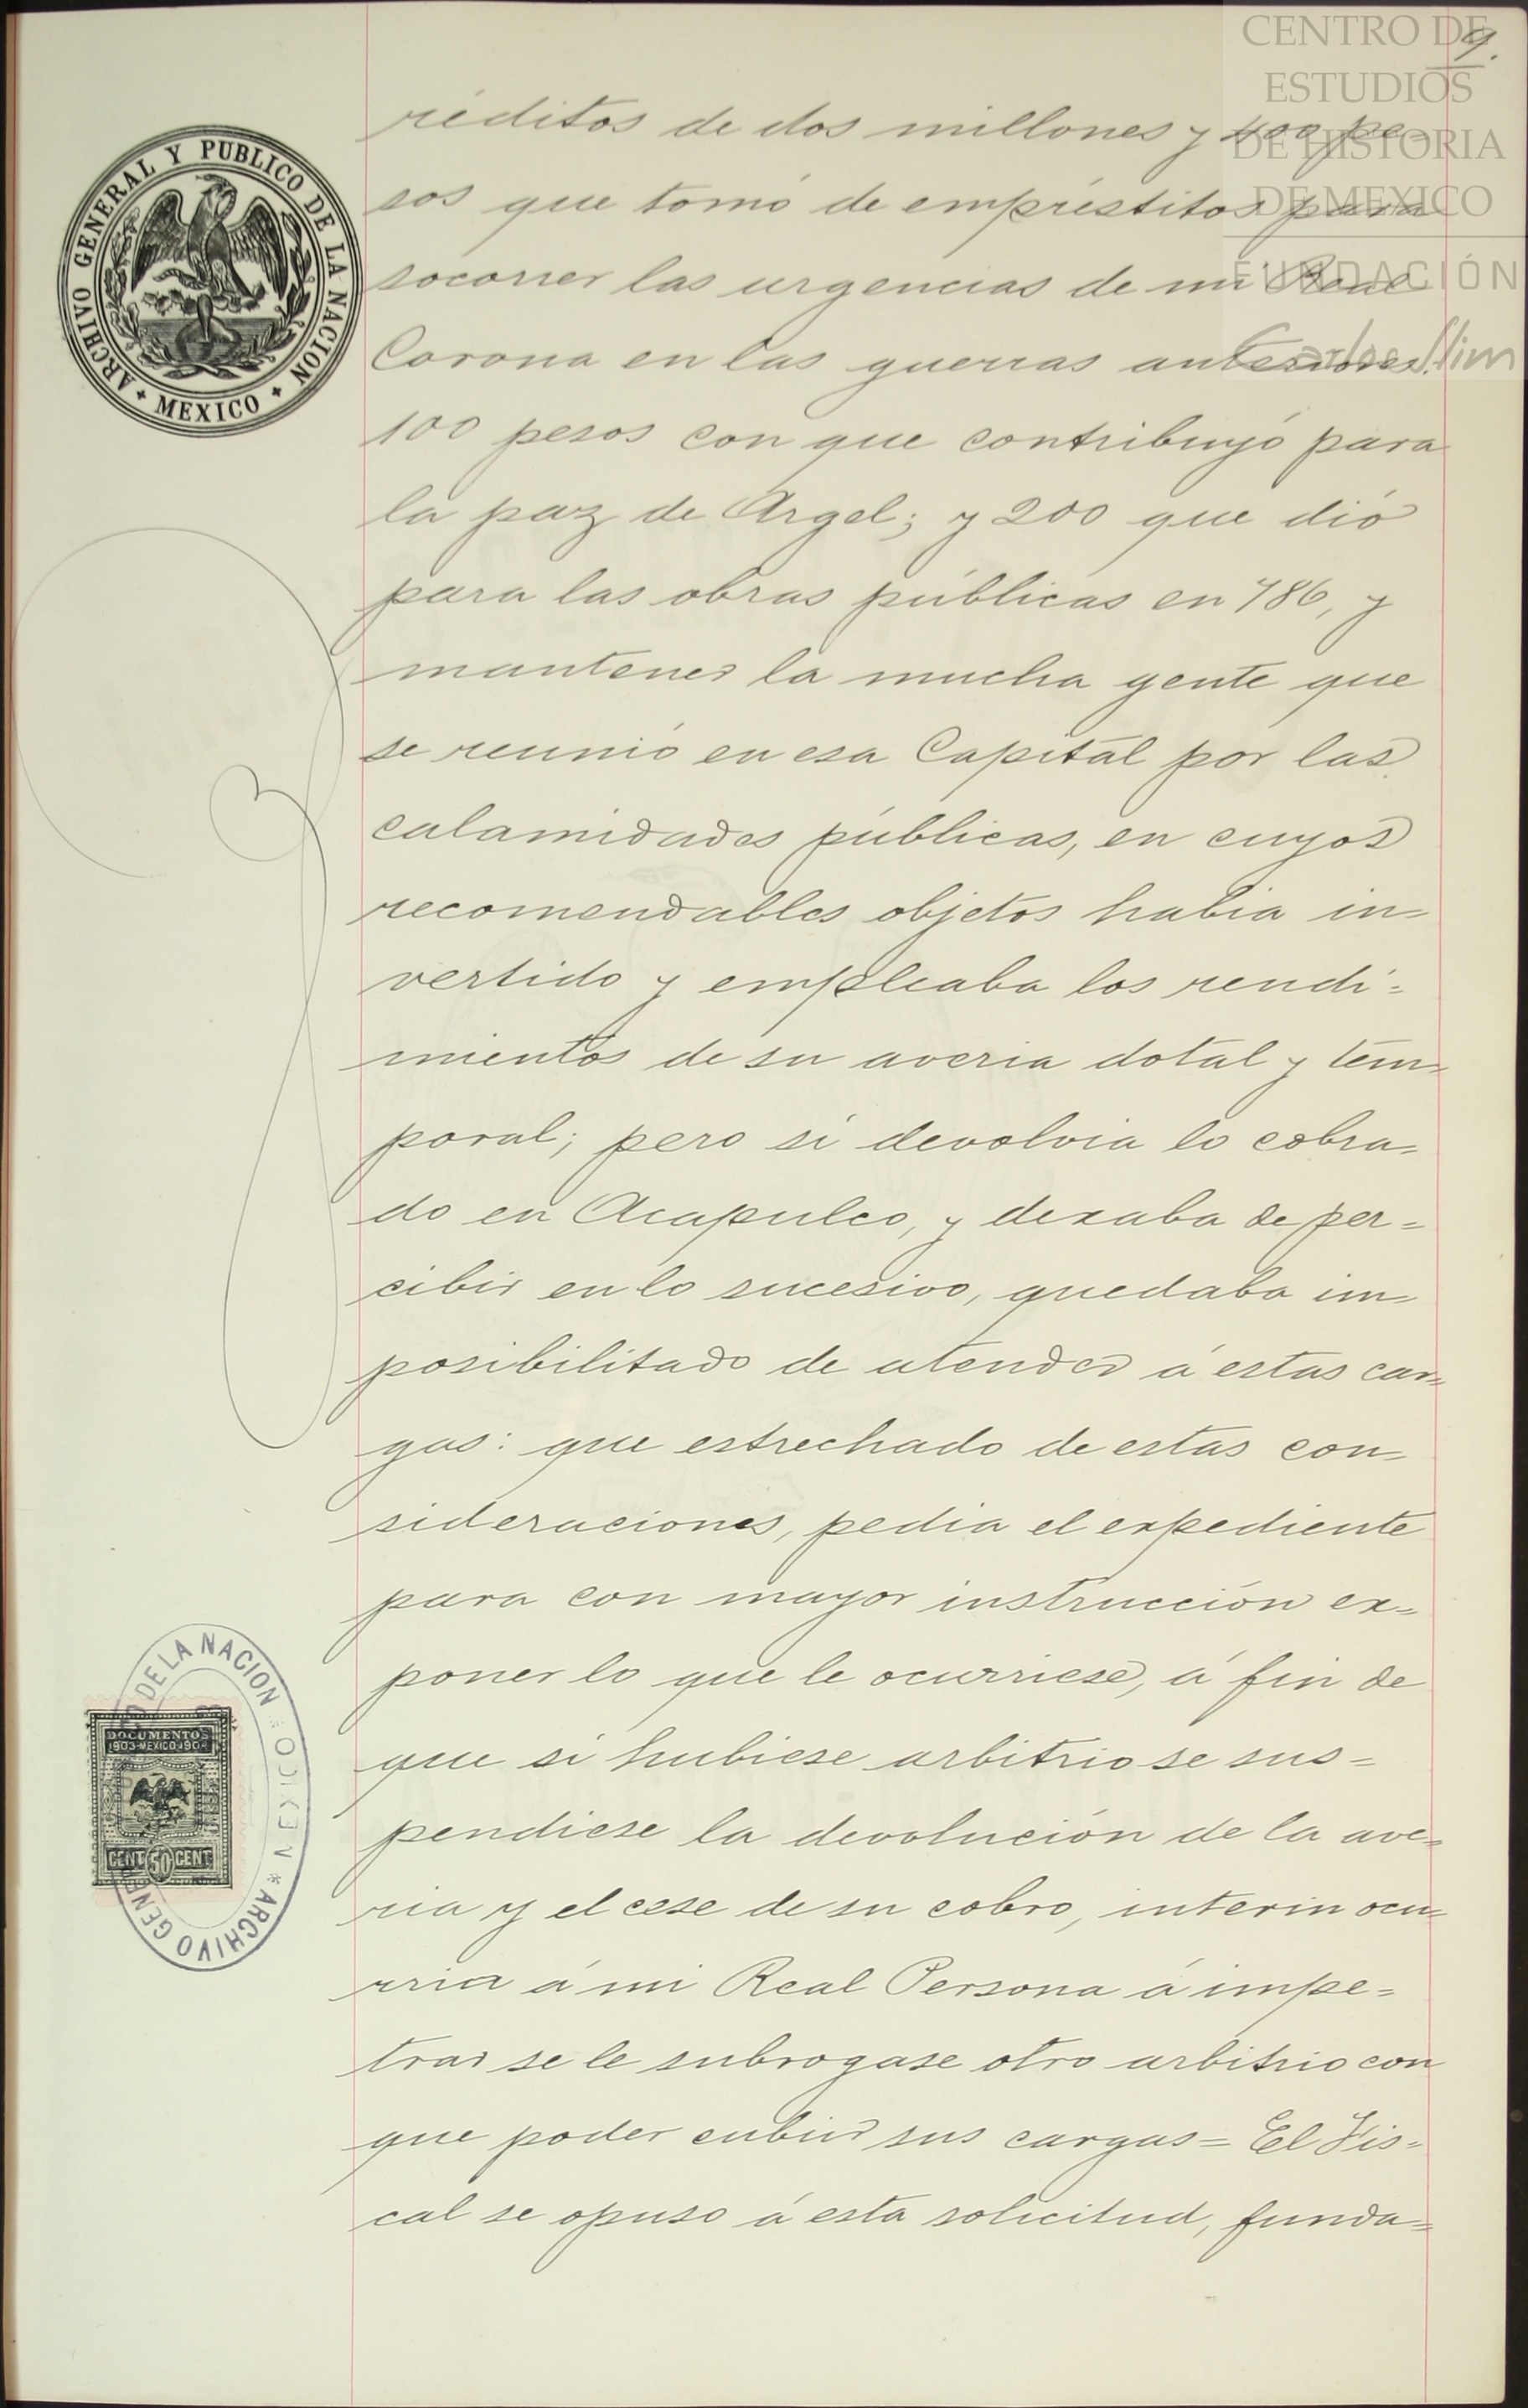 CENTRO DE
ESTUDIOS
DE HISTORIA
DE MEXICO
FUNDACIÓN
Carlos Slim
9.
ARCHIVO GENERAL Y PUBLICO DE LA NACION
MEXICO
réditos de dos millones y 400 pe-
sos que tomó de empréstitos para
socorrer las urgencias de mi Real
Corona en las guerras anteriores.
100 pesos con que contribuyó para
la paz de Argel; y 200 que dió
para las obras públicas en 786, y
mantener la mucha gente que
se reunió en esa Capital por las
calamidades públicas, en cuyos
recomendables objetos habia in=
vertido y empleaba los rendi=
mientos de su averia dotal y tem=
poral; pero si devolvia lo cobra=
do en Acapulco, y dexaba de per=
cibir en lo sucesivo, quedaba im=
posibilitado de atender á estas car=
gas: que estrechado de estas con=
sideraciones, pedia el expediente
para con mayor instrucción ex=
poner lo que le ocurriese, á fin de
que si hubiese arbitrio se sus=
pendiese la devolución de la ave=
ria y el cese de su cobro, interin ocu=
rria á mi Real Persona á impe=
trar se le subrogase otro arbitrio con
que poder cubrir sus cargas= El Fis=
cal se opuso á esta solicitud, funda=
DOCUMENTOS
1903-MEXICO-1904
CENT 50 CENT
DE LA NACION
MEXICO * ARCHIVO GENE